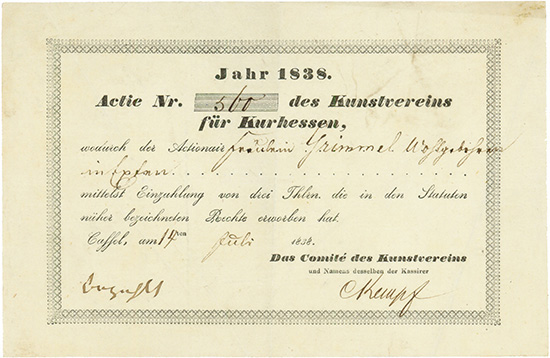 Jahr 1838.
Actie Nr. 560 des Kunstvereins
für Kurhessen,
wodurch der Actionair Fräulein Grimmel Wohlgebohren
in
mittelst Einzahlung von drei Thlrn. die in den Statuten
näher bezeichneten Rechte erworben hat.
Cassel, am 14ten Juli 1838.
Das Comité des Kunstvereins
und Namens desselben der Kassirer
bezahlt
Kempf